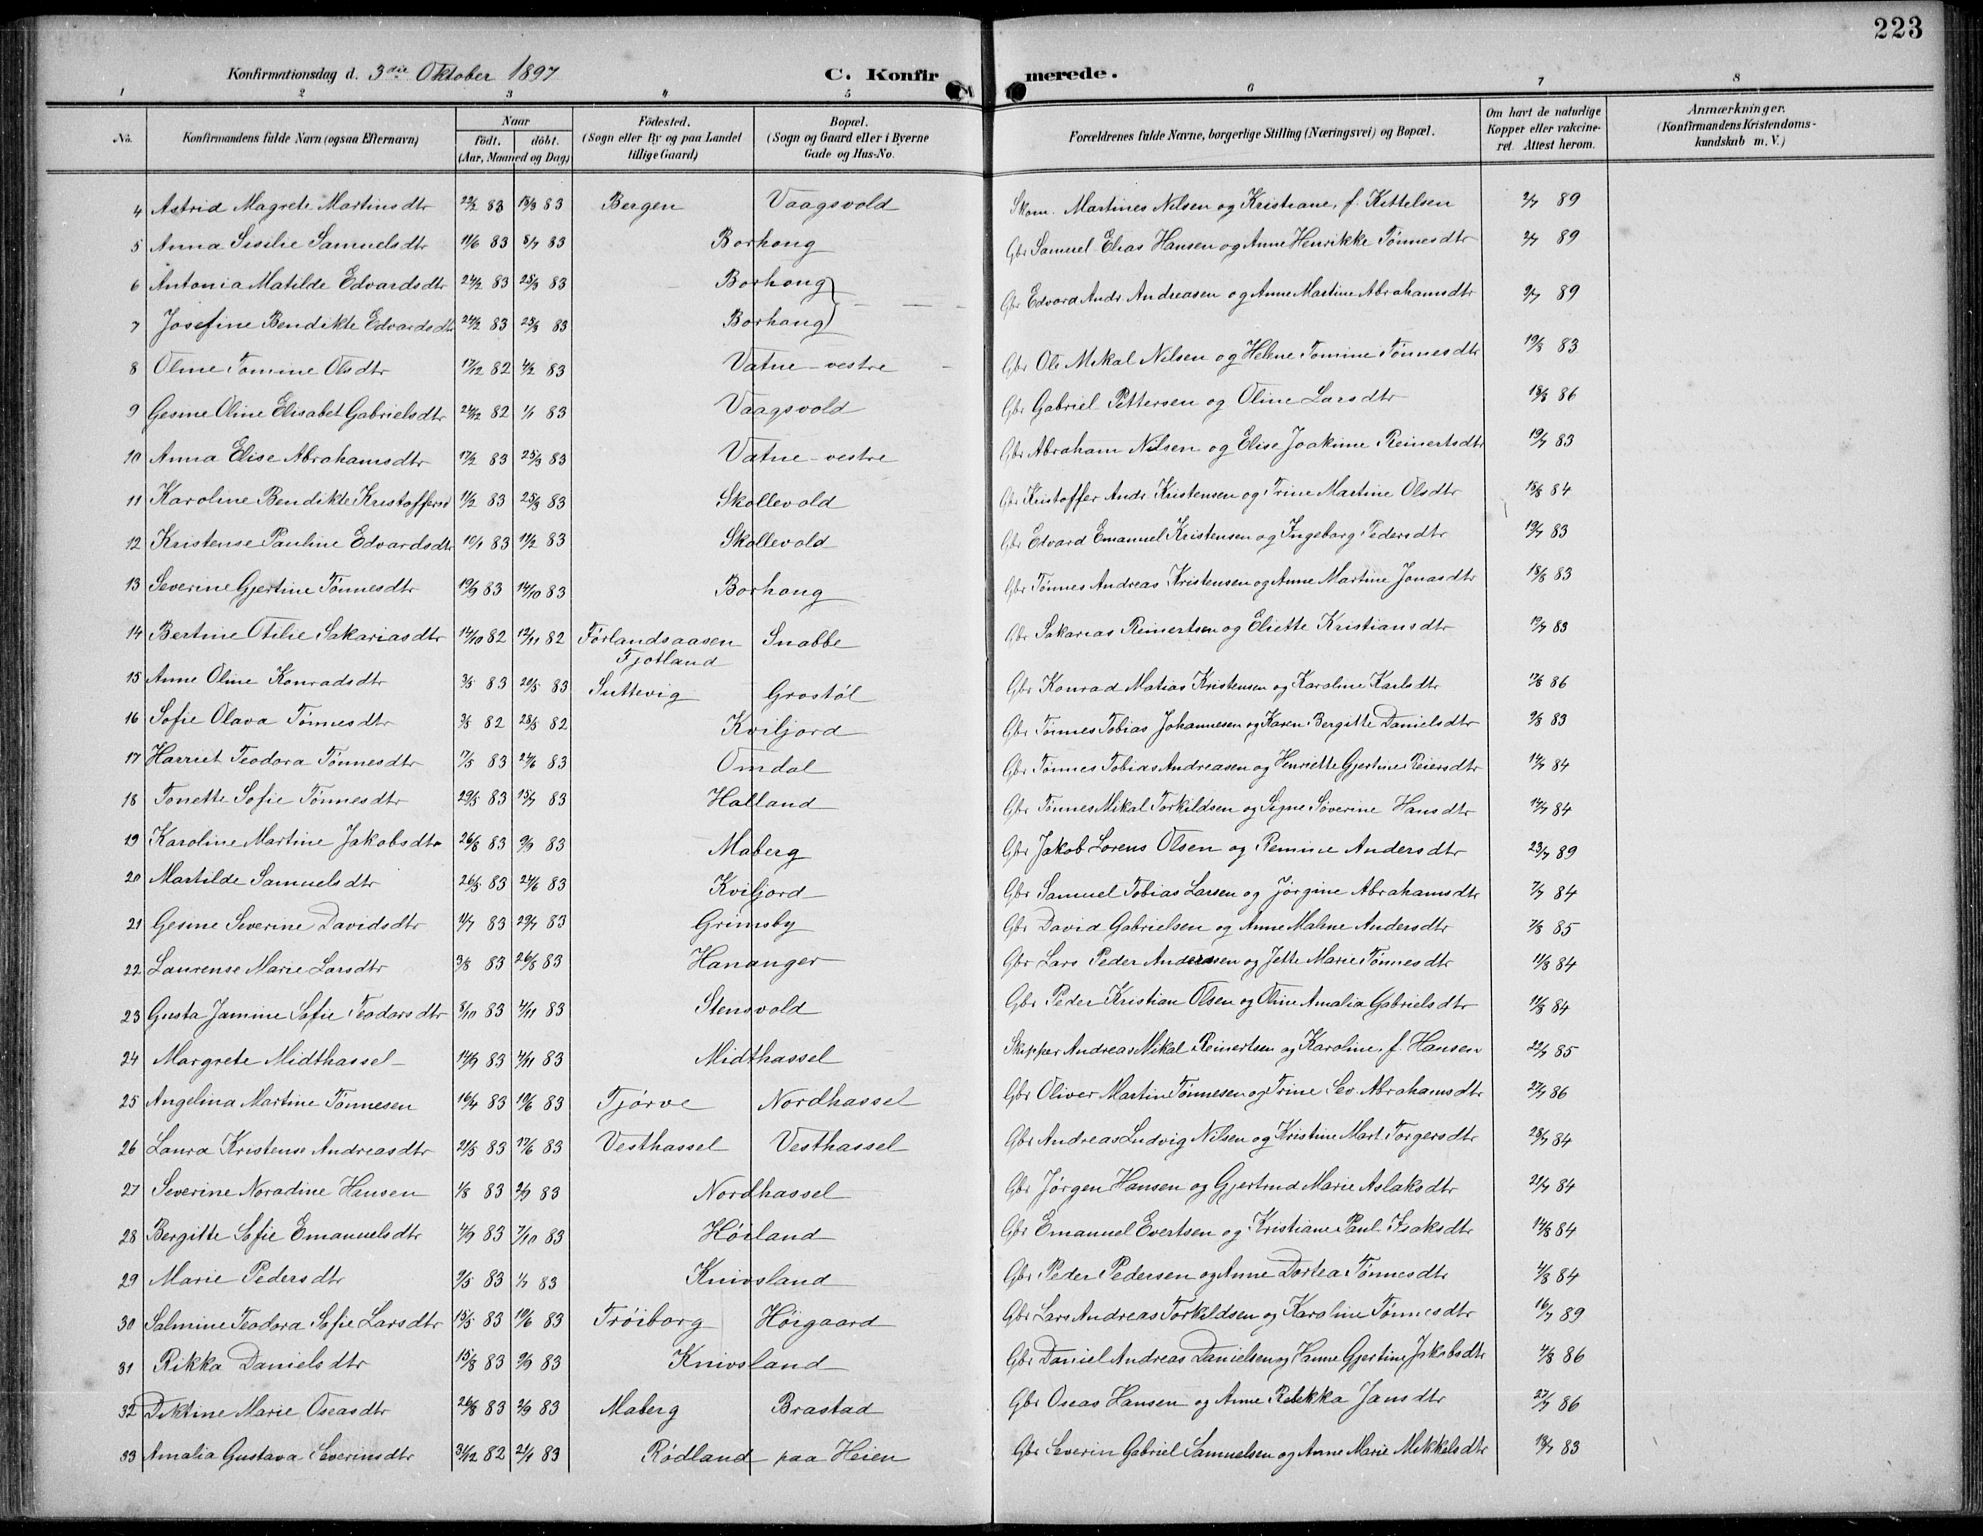 223
Konfirmationsdag d. 3die Oktober 1897 C. Konfirmerede.
1 2 3 4 5 6 7 8
No. Konfirmandens fulde Navn (ogsaa Efternavn) Naar födt. döbt. (Aar, Maaned og Dag) Födested. (Sogn eller By og paa Landet tillige Gaard) Bopæl. (Sogn og Gaard eller i Byerne Gade og Hus-No. Forældrenes fulde Navne, borgerlige Stilling (Næringsvei) og Bopæl. Om havt de naturlige Kopper eller vakcineret. Attest herom. Anmærkninger. (Konfirmandens Kristendomskundskab m. V.)
4 Astrid Magrete Martinsdtr 22/2 83 18/3 83 Bergen Vaagsvold Skom. Martines Nilsen og Kristiane, f. Kittelsen 2/7 89
5 Anna Sisilie Samuelsdtr 11/6 83 8/7 83 Borhong Gbr Samuel Elias Hansen og Anne Henrikke Tønnesdtr 2/7 89
6 Antonia Matilde Edvardsdtr 24/2 83 25/3 83 Borhong Gbr Edvard Andr Andreasen og Anne Martine Abrahamsdtr 2/7 89
7 Josefine Bendikte Edvardsdtr 24/2 83 25/3 83 Borhong
8 Oline Tomine Olsdtr 17/12 82 4/2 83 Vatne - vestre Gbr Ole Mikal Nilsen og Helene Tomine Tønnesdtr 19/8 83
9 Gesine Oline Elisabet Gabrielsdtr 24/12 82 1/1 83 Vaagsvold Gbr Gabriel Pettersen og Oline Larsdtr 18/8 86
10 Anna Elise Abrahamsdtr 17/2 83 25/3 83 Vatne - vestre Gbr Abraham Nilsen og Elise Joakime Reinertsdtr 19/7 83
11 Karoline Bendikte Kristoffersd 11/2 83 25/3 83 Skollevold Gbr Kristoffer Andr Kristensen og Trine Martine Olsdtr 15/8 84
12 Kristense Pauline Edvardsdtr 10/1 83 11/2 83 Skollevold Gbr Edvard Emanuel Kristensen og Ingeborg Pedersdtr 19/7 83
13 Severine Gjertine Tønnesdtr 19/9 83 14/10 83 Borhong Gbr Tønnes Andreas Kristensen og Anne Martine Jonasdtr 18/8 83
14 Bertine Otilie Sakariasdtr 14/10 82 12/11 82 Førlandsaasen Fjotland Snabbe Gbr Sakarias Reinertsen og Eliette Kristiansdtr 19/7 83
15 Anne Oline Konradsdtr 3/5 83 20/5 83 Suttevig Grostøl Gbr Konrad Matias Kristensen og Karoline Karlsdtr 17/8 86
16 Sofie Olava Tønnesdtr 3/5 82 28/5 82 Kviljord Gbr Tønnes Tobias Johannesen og Karen Bergitte Danielsdtr 9/8 83
17 Harriet Teodora Tønnesdtr 17/5 83 24/6 83 Omdal Gbr Tønnes Tobias Andreasen og Henriette Gjertine Reiersdtr 14/7 84
18 Tonette Sofie Tønnesdtr 29/5 83 15/7 83 Halland Gbr Tønnes Mikal Torkildsen og Signe Søverine Hansdtr 14/7 84
19 Karoline Martine Jakobsdtr 26/8 83 9/9 83 Maberg Gbr Jakob Lorens Olsen og Remine Andersdtr 23/7 89
20 Martilde Samuelsdtr 26/5 83 24/6 83 Kviljord Gbr Samuel Tobias Larsen og Jørgine Abrahamsdtr 7/7 84
21 Gesine Severine Davidsdtr 11/7 83 29/7 83 Grimsby Gbr David Gabrielsen og Anne Malene Andersdtr 7/8 85
22 Laurense Marie Larsdtr 3/8 83 26/8 83 Hananger Gbr Lars Peder Anderssen og Jette Marie Tønnesdtr 11/8 84
23 Gusta Jamine Sofie Teodorsdtr 8/10 83 4/11 83 Stensvold Gbr Peder Kristian Olsen og Oline Amalia Gabrielsdtr 11/8 84
24 Margrete Midthassel 14/9 83 4/11 83 Midthassel Skipper Andreas Mikal Reinertsen og Karoline, f. Hansen 22/7 85
25 Angelina Martine Tønnesen 16/4 83 10/6 83 Tjørve Nordhassel Gbr Oliver Martin Tønnesen og Trine Sev. Abrahamsdtr 27/7 86
26 Laura Kristense Andreasdtr 21/5 83 17/6 83 Vesthassel Vesthassel Gbr Andreas Ludvig Nilsen og Kristine Mart. Torgersdtr 28/7 84
27 Severine Noradine Hansen 1/8 83 2/9 83 Nordhassel Gbr Jørgen Hansen og Gjertrud Marie Aslaksdtr 21/7 84
28 Bergitte Sofie Emanuelsdtr 4/9 83 7/10 83 Høiland Gbr Emanuel Evertsen og Kristiane Paul. Isaksdtr 14/8 84
29 Marie Pedersdtr 9/5 83 1/7 83 Knivsland Gbr Peder Pedersen og Anne Dortea Tønnesdtr 4/8 84
30 Salmine Teodora Sofie Larsdtr 15/5 83 10/6 83 Trøiborg Høigaard Gbr Lars Andreas Torkildsen og Karoline Tønnesdtr 16/7 89
31 Rikka Danielsdtr 15/8 83 9/9 83 Knivsland Gbr Daniel Andreas Danielsen og Hanne Gjertine Jakobsdtr 4/8 86
32 Diktine Marie Oseasdtr 26/8 83 2/9 83 Maberg Brastad Gbr Oseas Hansen og Anne Rebekka Jansdtr 27/7 86
33 Amalia Gustava Severinsdtr 31/12 82 21/1 83 Rødland paa Heien Gbr Severin Gabriel Samuelsen og Anne Marie Mikkelsdtr 18/7 83